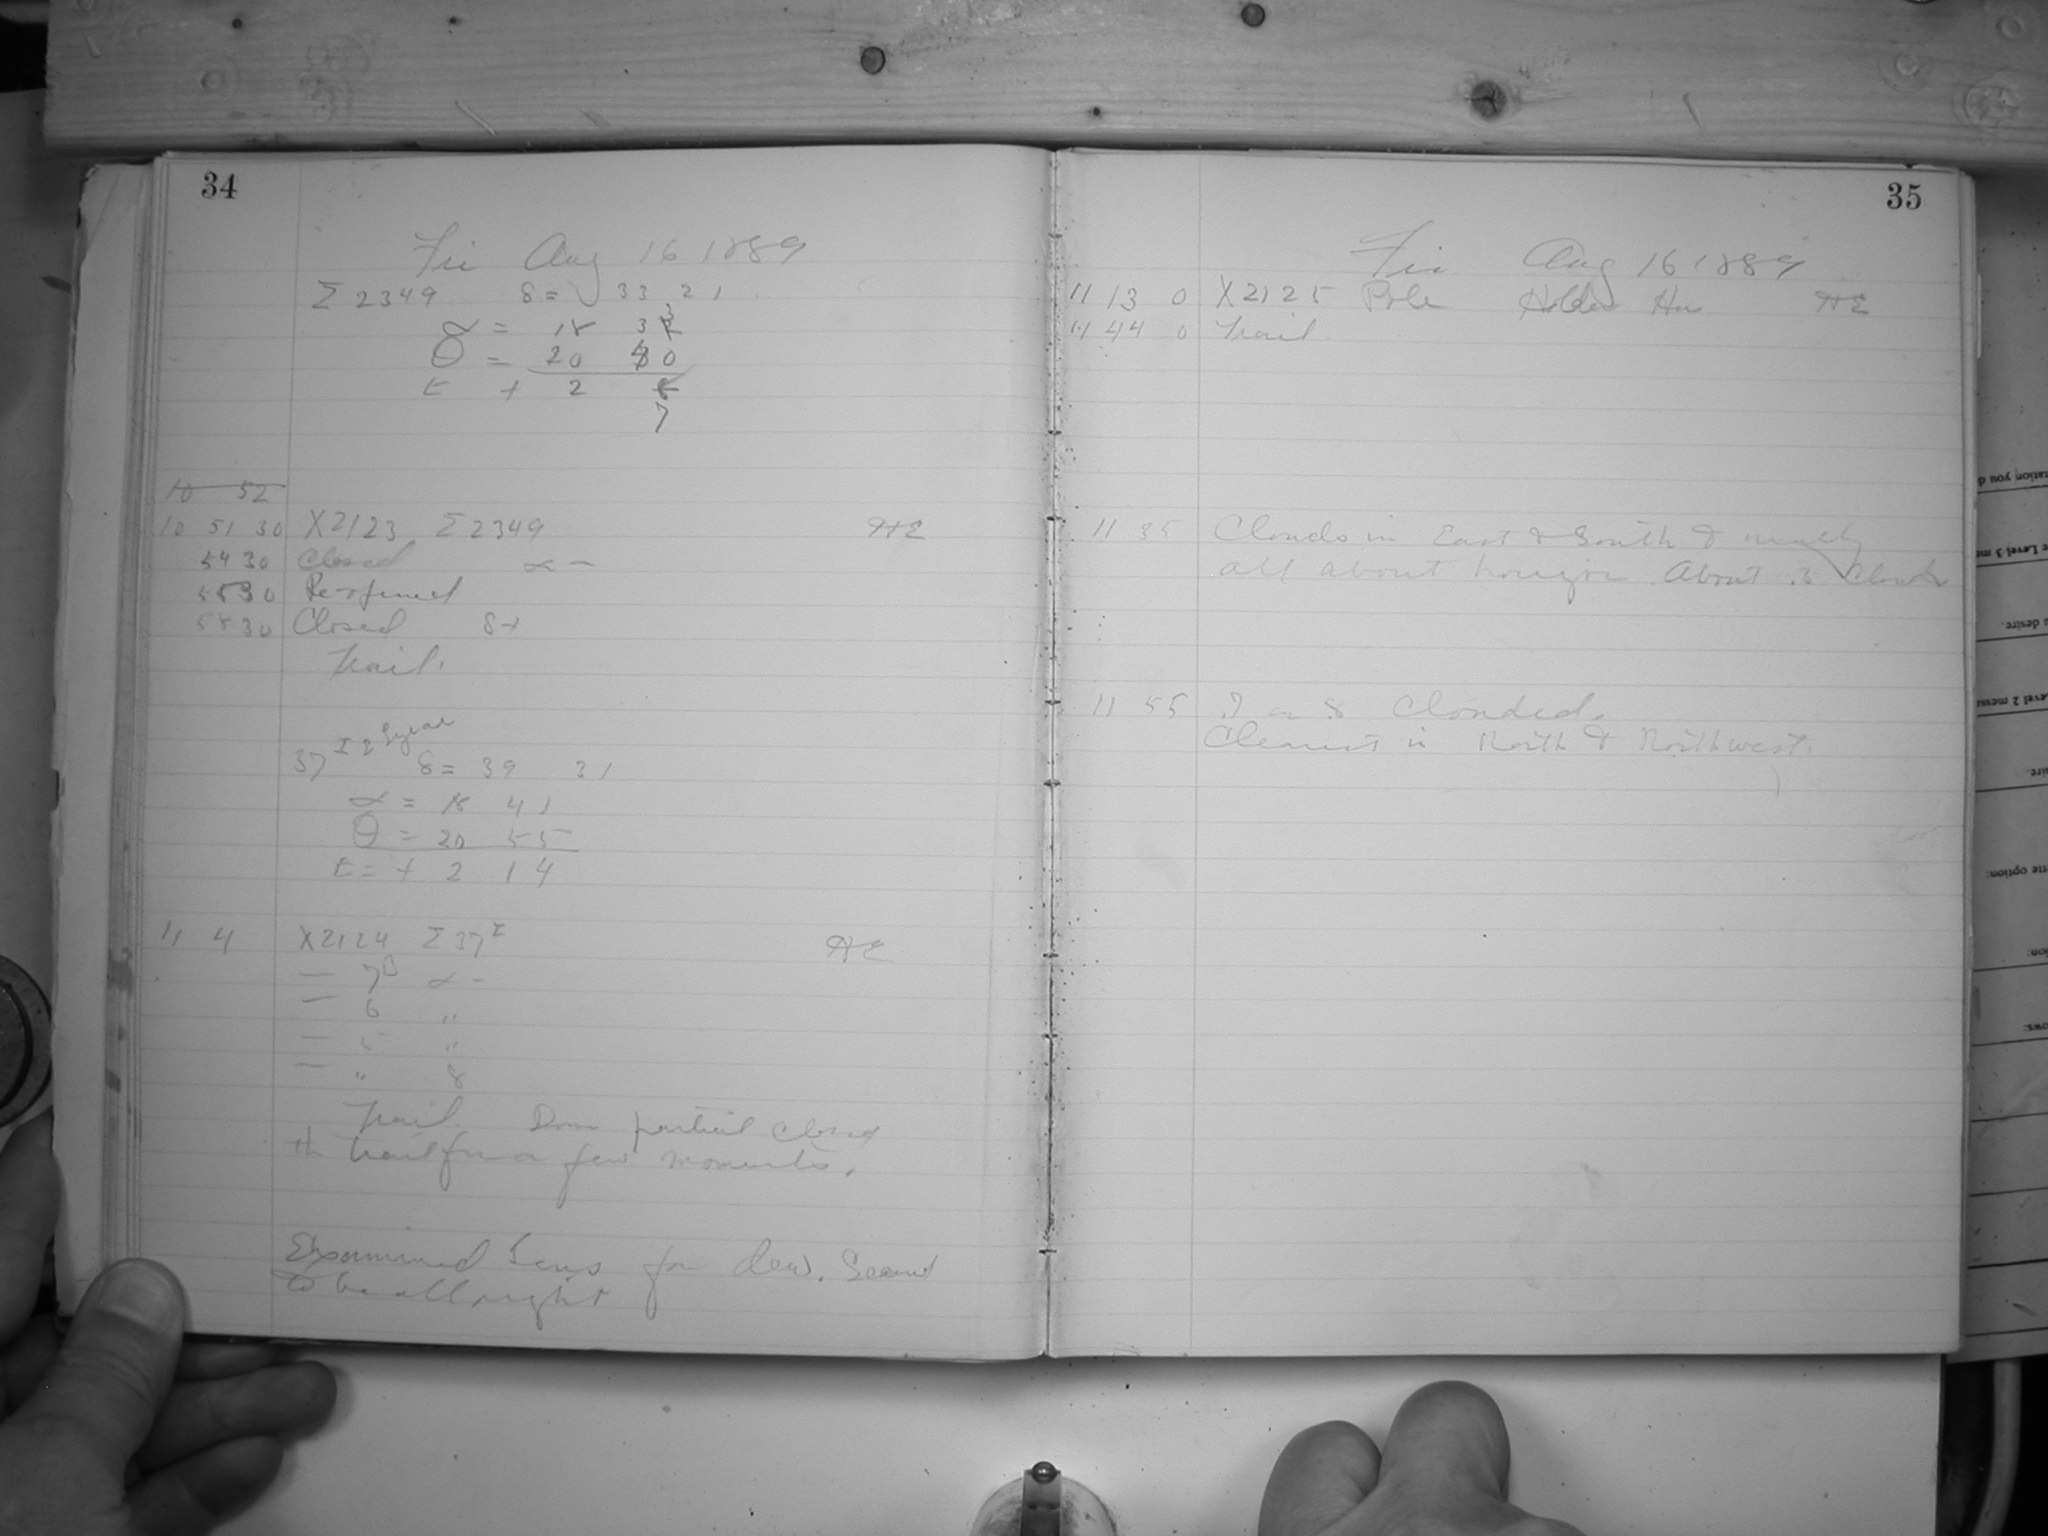 34
Fri Aug 16 1889
Σ 2349 δ = 33 21
α = 18 33
θ = 20 40
t + 2 7
10 52
10 51 30 X2123 Σ2349 HE
54 30 Closed α -
55 30 Re-opened
58 30 Closed 8+
Trail.
37 I & Lyrae δ = 39 31
α = 18 41
θ = 20 55
t = + 2 14
11 4 X2124 Σ37 I HE
— 7 α -
— 6 "
— 5 "
— " 8
Trail. Dom partial closed
trail for a few moments.
Examined Lens for dew. Seemed
to be all right
35
Fri Aug 16 1889
11 13 0 X2125 Pole Holder HE
11 44 0 Trail
11 35 Clouds in East & South & nearly
all about horizon. About .3 clouds
11 55 .7 or .8 Clouded.
Clearest in North & Northwest.